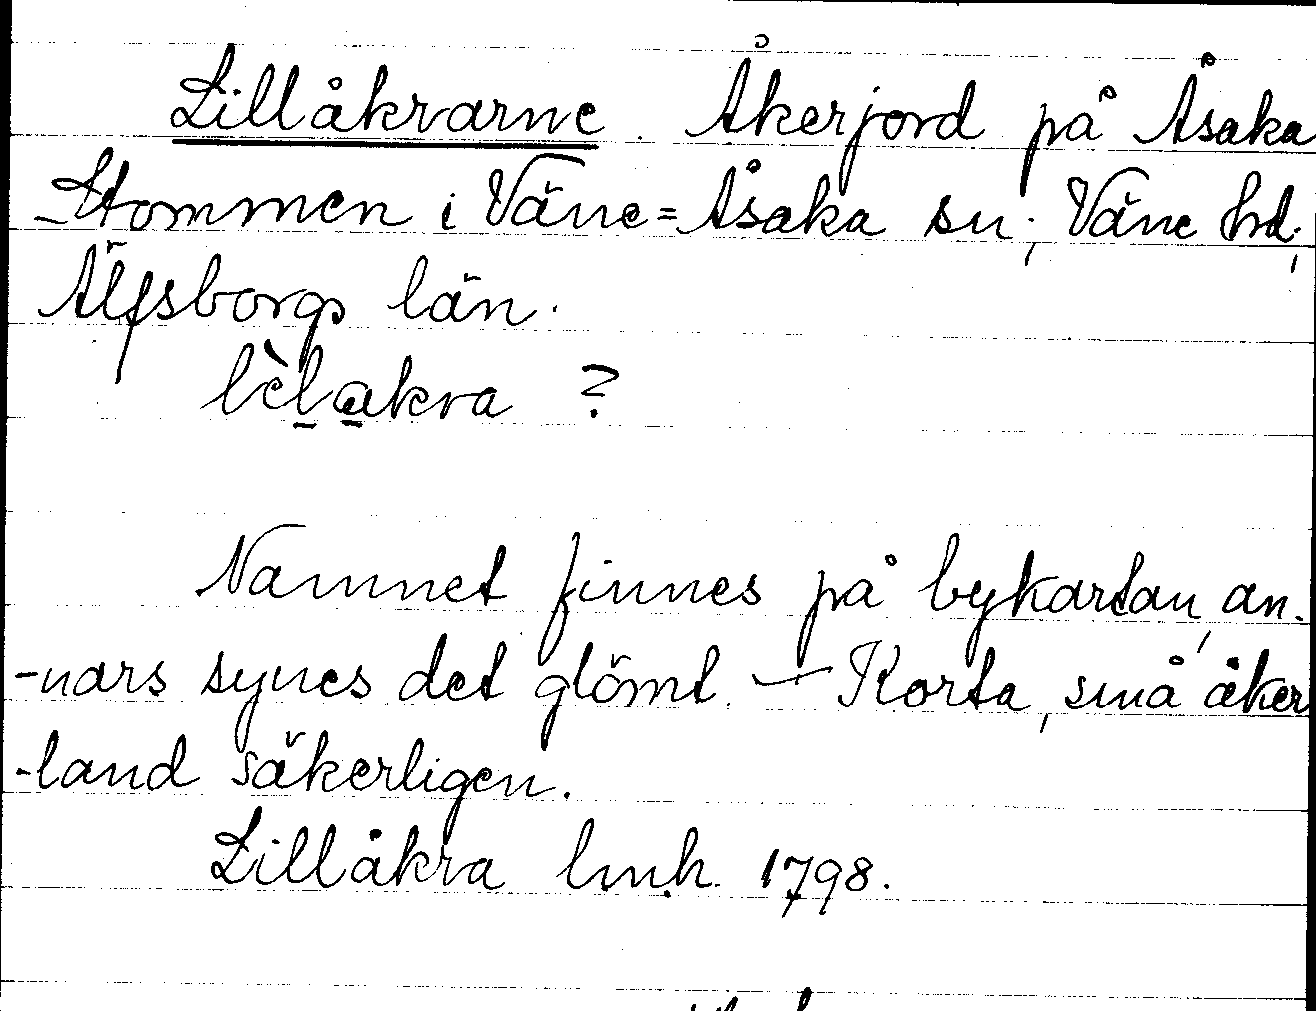 Lillåkrarne. Åkerjord på Åsaka
-Stommen i Väne=Åsaka sn; Väne hd;
Älfsborgs län.
lèlakra ?
Namnet finnes på bykartan, an-
-nars synes det glömt. — Korta, små åker
-land säkerligen.
Lillåkra lmh. 1798.